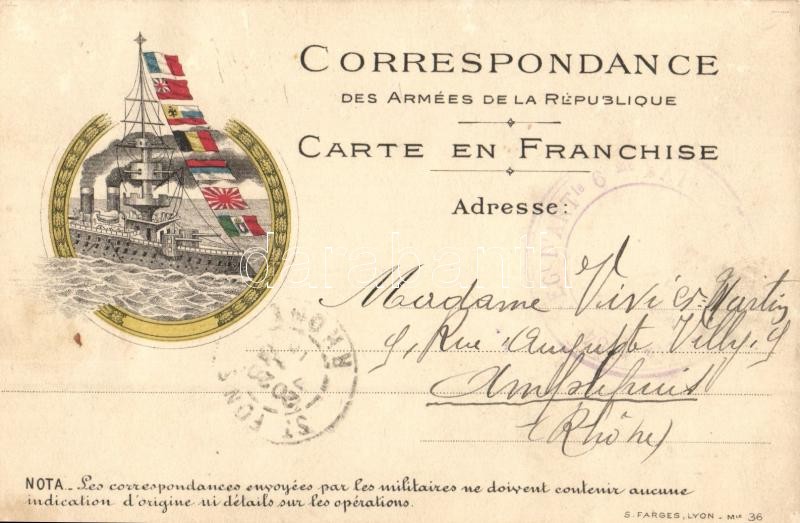 CORRESPONDANCE
DES ARMÉES DE LA RÉPUBLIQUE
CARTE EN FRANCHISE
Adresse:
Madame Vivier-Martin
9, Rue Auguste Villy, 9
Amplepuis
(Rhône)
ST FONS RHONE
darabanth
NOTA _ Les correspondances envoyées par les militaires ne doivent contenir aucune
indication d'origine ni détails sur les opérations.
S. FARGES, LYON - Mle 36